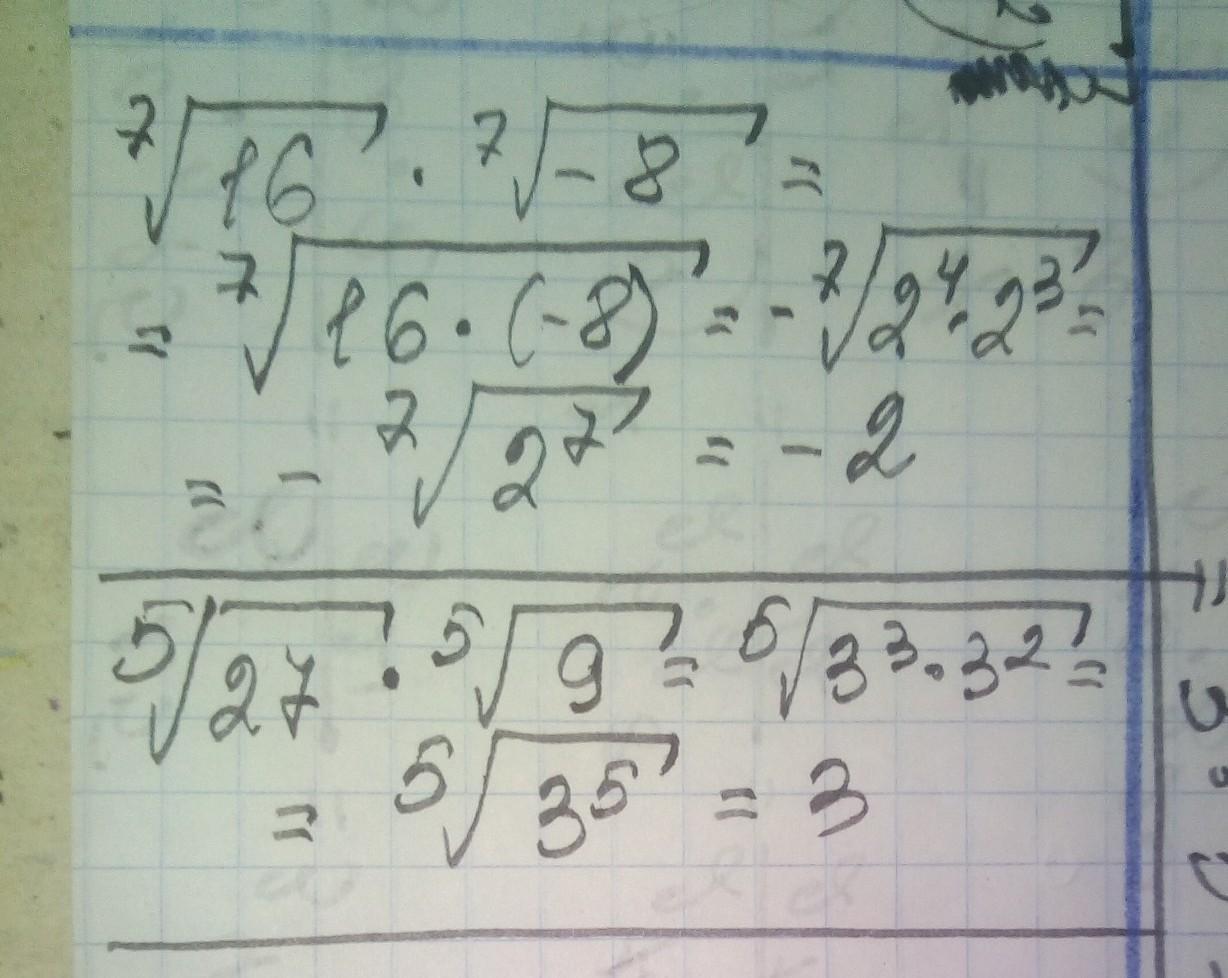 ⁷√16 · ⁷√-8 =
= ⁷√16 · (-8) = - ⁷√2⁴ · 2³ =
= - ⁷√2⁷ = - 2
⁵√27 · ⁵√9 = ⁵√3³ · 3² =
= ⁵√3⁵ = 3